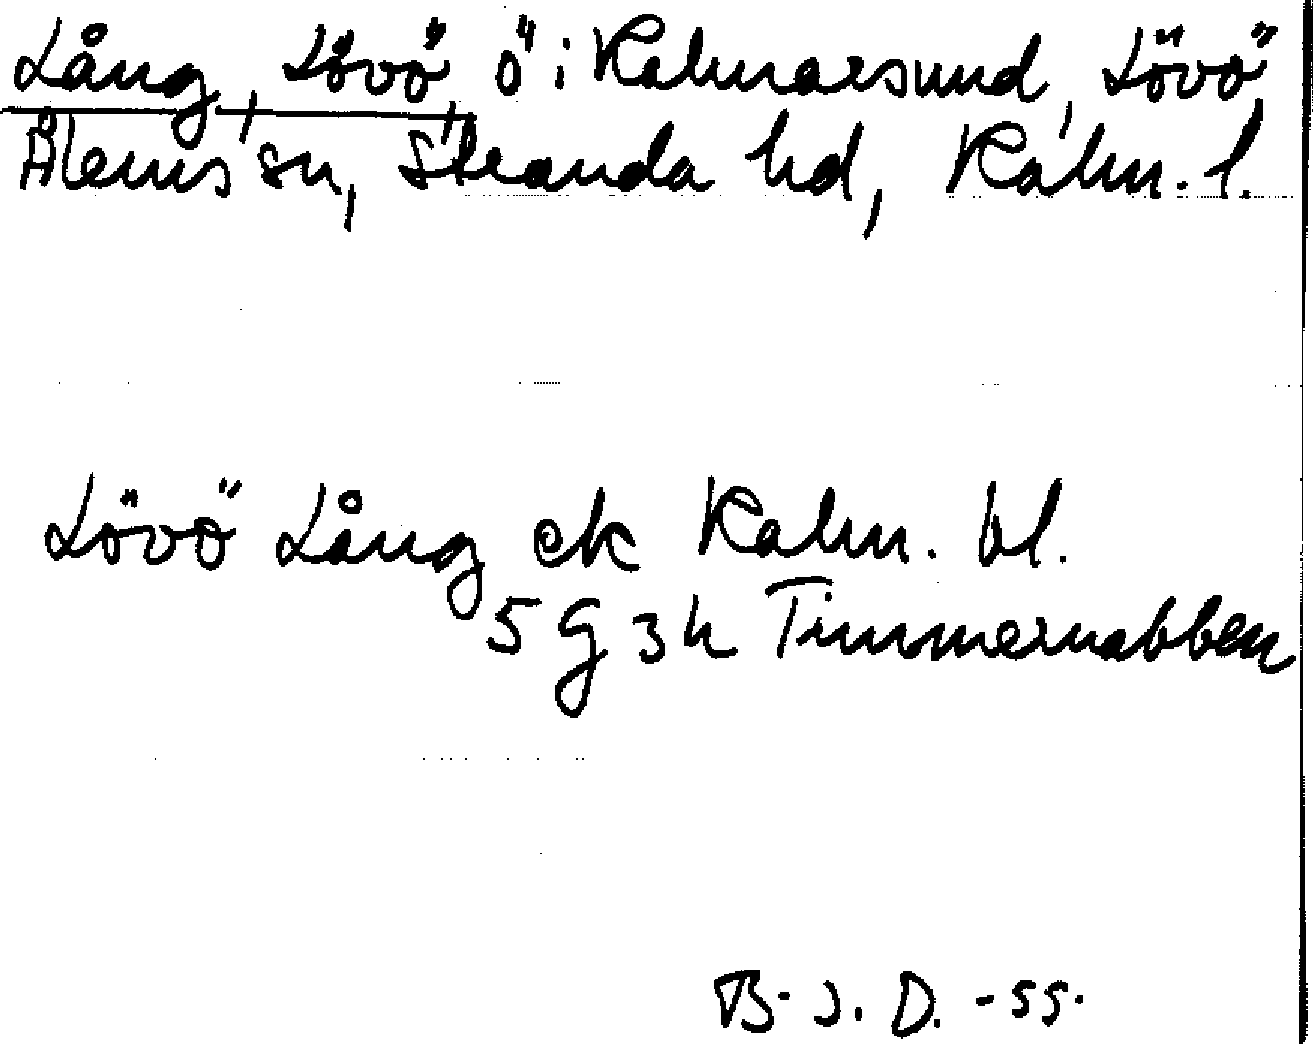 Lång, Lövö, ö i Kalmarsund, Lövö
Ålems sn, Stranda hd, Kalm. l.
Lövö Lång ek Kalm. bl.
5 G 3 h Timmernabben
B. J. D. -55.